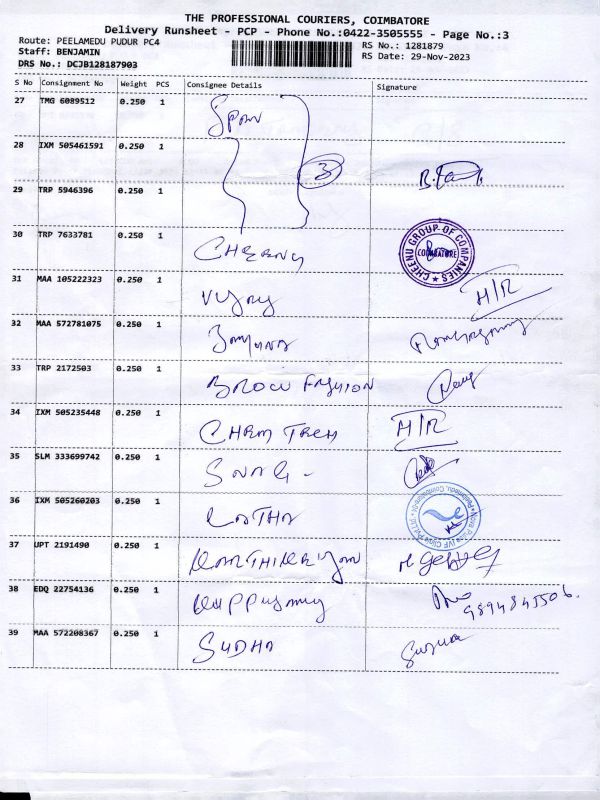 THE PROFESSIONAL COURIERS, COIMBATORE
Delivery Runsheet - PCP - Phone No.:0422-3505555 - Page No.:3
Route: PEELAMEDU PUDUR PC4 RS No.: 1281879
Staff: BENJAMIN RS Date: 29-Nov-2023
DRS No.: DCJB128187903
S No Consignment No Weight PCS Consignee Details Signature
27 TMG 6089512 0.250 1 Span
28 IXM 505461591 0.250 1 3
29 TRP 5946396 0.250 1
30 TRP 7633781 0.250 1 CHEENU CHEENU GROUP OF COMPANIES COIMBATORE
31 MAA 105222323 0.250 1 H/R
32 MAA 572781075 0.250 1
33 TRP 2172503 0.250 1 FASHION
34 IXM 505235448 0.250 1 CHEM TECH H/R
35 SLM 333699742 0.250 1
36 IXM 505260203 0.250 1
37 UPT 2191490 0.250 1
38 EDQ 22754136 0.250 1
39 MAA 572208367 0.250 1 SUDHA